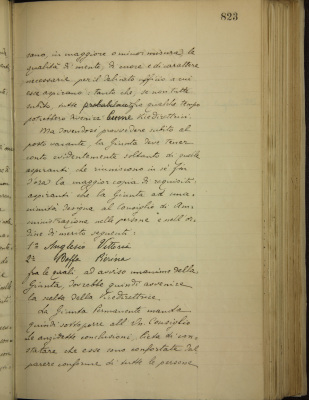 823
sono, in maggiore o minor misura, le
qualità di mente, di cuore e di carattere
necessarie per il delicato ufficio a cui
esse aspirano: tanto che, se non tutte
subito, tutte probabilmente fra qualche tempo
potrebbero divenire buone Vicedirettrici.
Ma dovendosi provvedere subito al
posto vacante, la Giunta deve tener
conto evidentemente soltanto di quelle
aspiranti che riuniscono in sè fin
d'ora la maggior copia di requisiti,
aspiranti che la Giunta ad una-
nimità designa al Consiglio di Am-
ministrazione nelle persone e nell'or-
dine di merito seguenti:
1ª Anglesio Vittoria
2ª Boffa Pierina
fra le quali, ad avviso unanime della
Giunta, dovrebbe quindi avvenire
la scelta della Vicedirettrice.
La Giunta Permanente manda
quindi sottoporre all' On. Consiglio
le anzidette conclusioni, lieta di con-
statare che esse sono confortate dal
parere conforme di tutte le persone